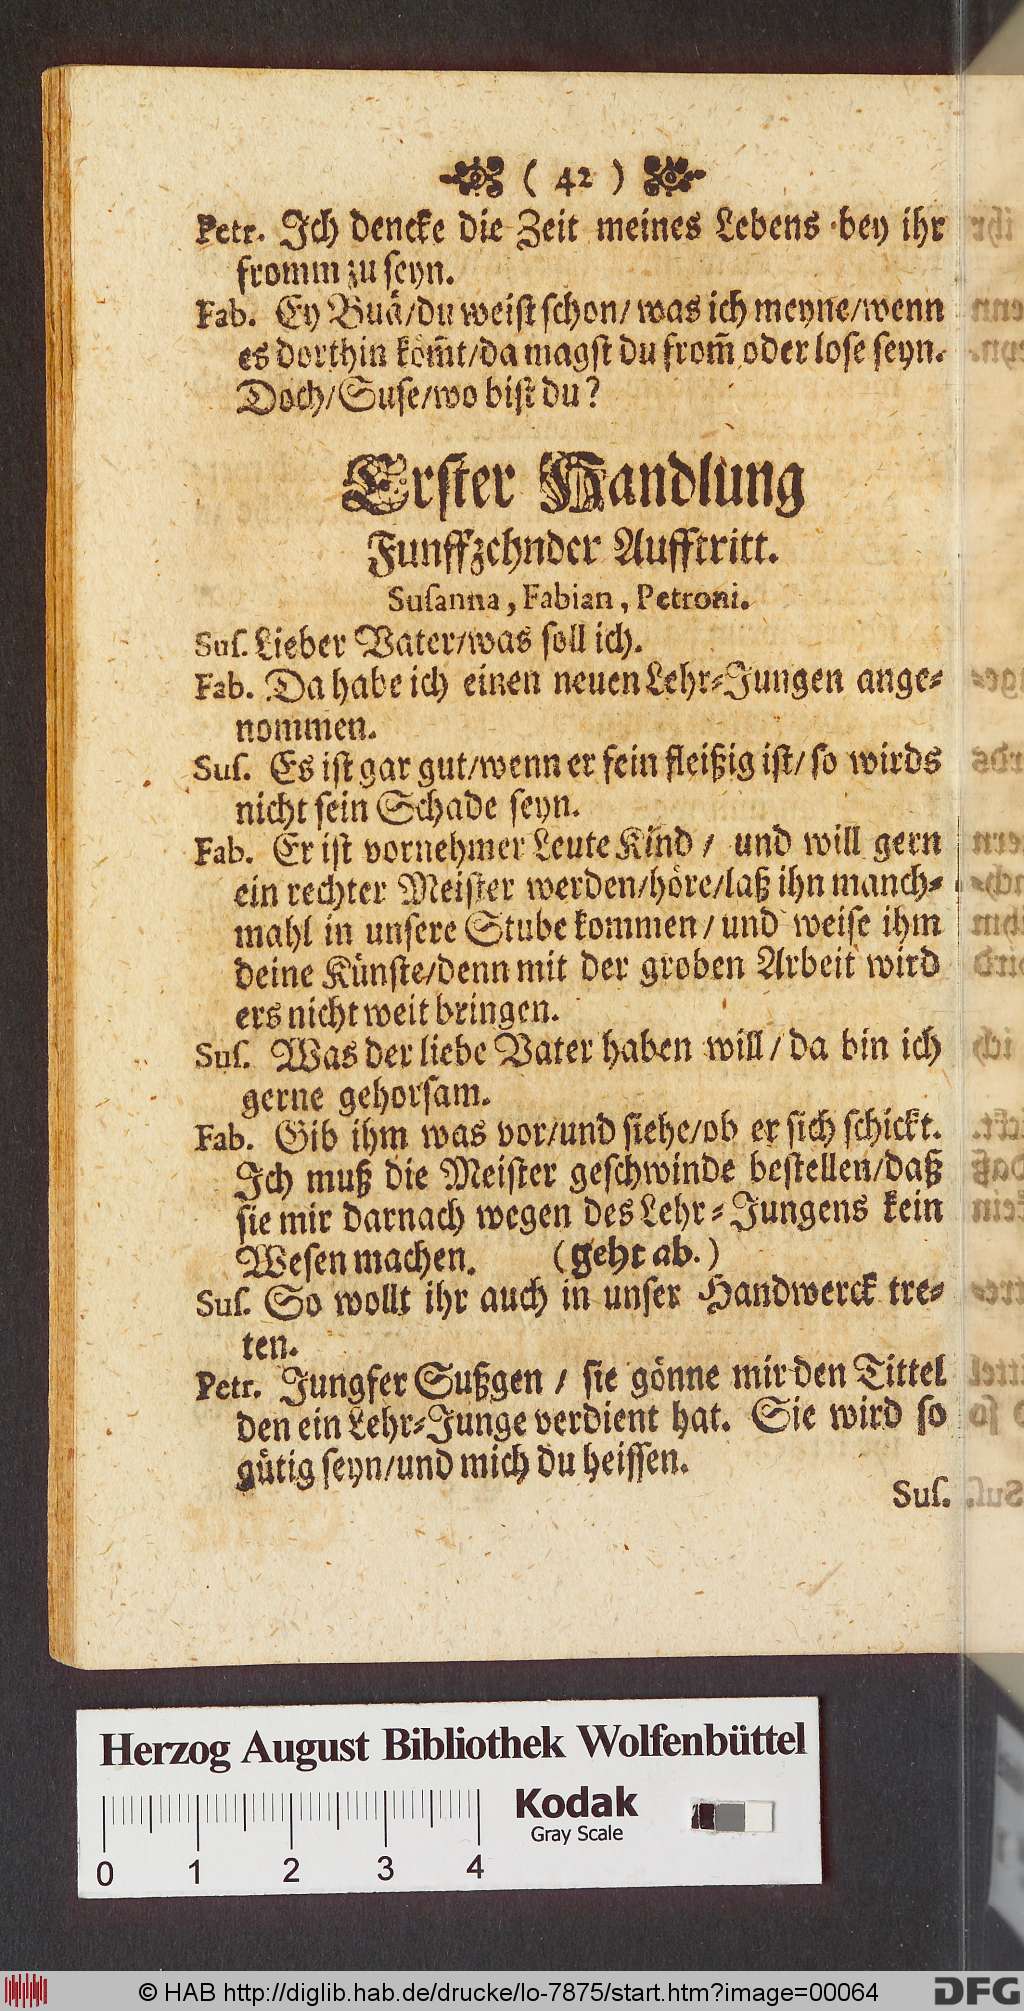 ( 42 )
Petr. Ich dencke die Zeit meines Lebens bey ihr
fromm zu seyn.
Fab. Ey Buä/du weist schon/ was ich meyne/wenn
es dorthin kom̃t/da magst du from̃ oder lose seyn.
Doch/Suse/wo bist du?
Erster Handlung
Funffzehnder Aufftritt.
Susanna, Fabian, Petroni.
Sus. Lieber Vater/was soll ich.
Fab. Da habe ich einen neuen Lehr-Jungen ange-
nommen.
Sus. Es ist gar gut/wenn er fein fleißig ist/ so wirds
nicht sein Schade seyn.
Fab. Er ist vornehmer Leute Kind / und will gern
ein rechter Meister werden/höre/laß ihn manch-
mahl in unsere Stube kommen / und weise ihm
deine Künste/denn mit der groben Arbeit wird
ers nicht weit bringen.
Sus. Was der liebe Vater haben will / da bin ich
gerne gehorsam.
Fab. Gib ihm was vor/und siehe/ob er sich schickt.
Ich muß die Meister geschwinde bestellen/daß
sie mir darnach wegen des Lehr-Jungens kein
Wesen machen. (geht ab.)
Sus. So wollt ihr auch in unser Handwerck tre-
ten.
Petr. Jungfer Sußgen / sie gönne mir den Tittel
den ein Lehr-Junge verdient hat. Sie wird so
gütig seyn/und mich du heissen.
Sus.
Herzog August Bibliothek Wolfenbüttel
Kodak
Gray Scale
0 1 2 3 4
© HAB http://diglib.hab.de/drucke/lo-7875/start.htm?image=00064
DFG